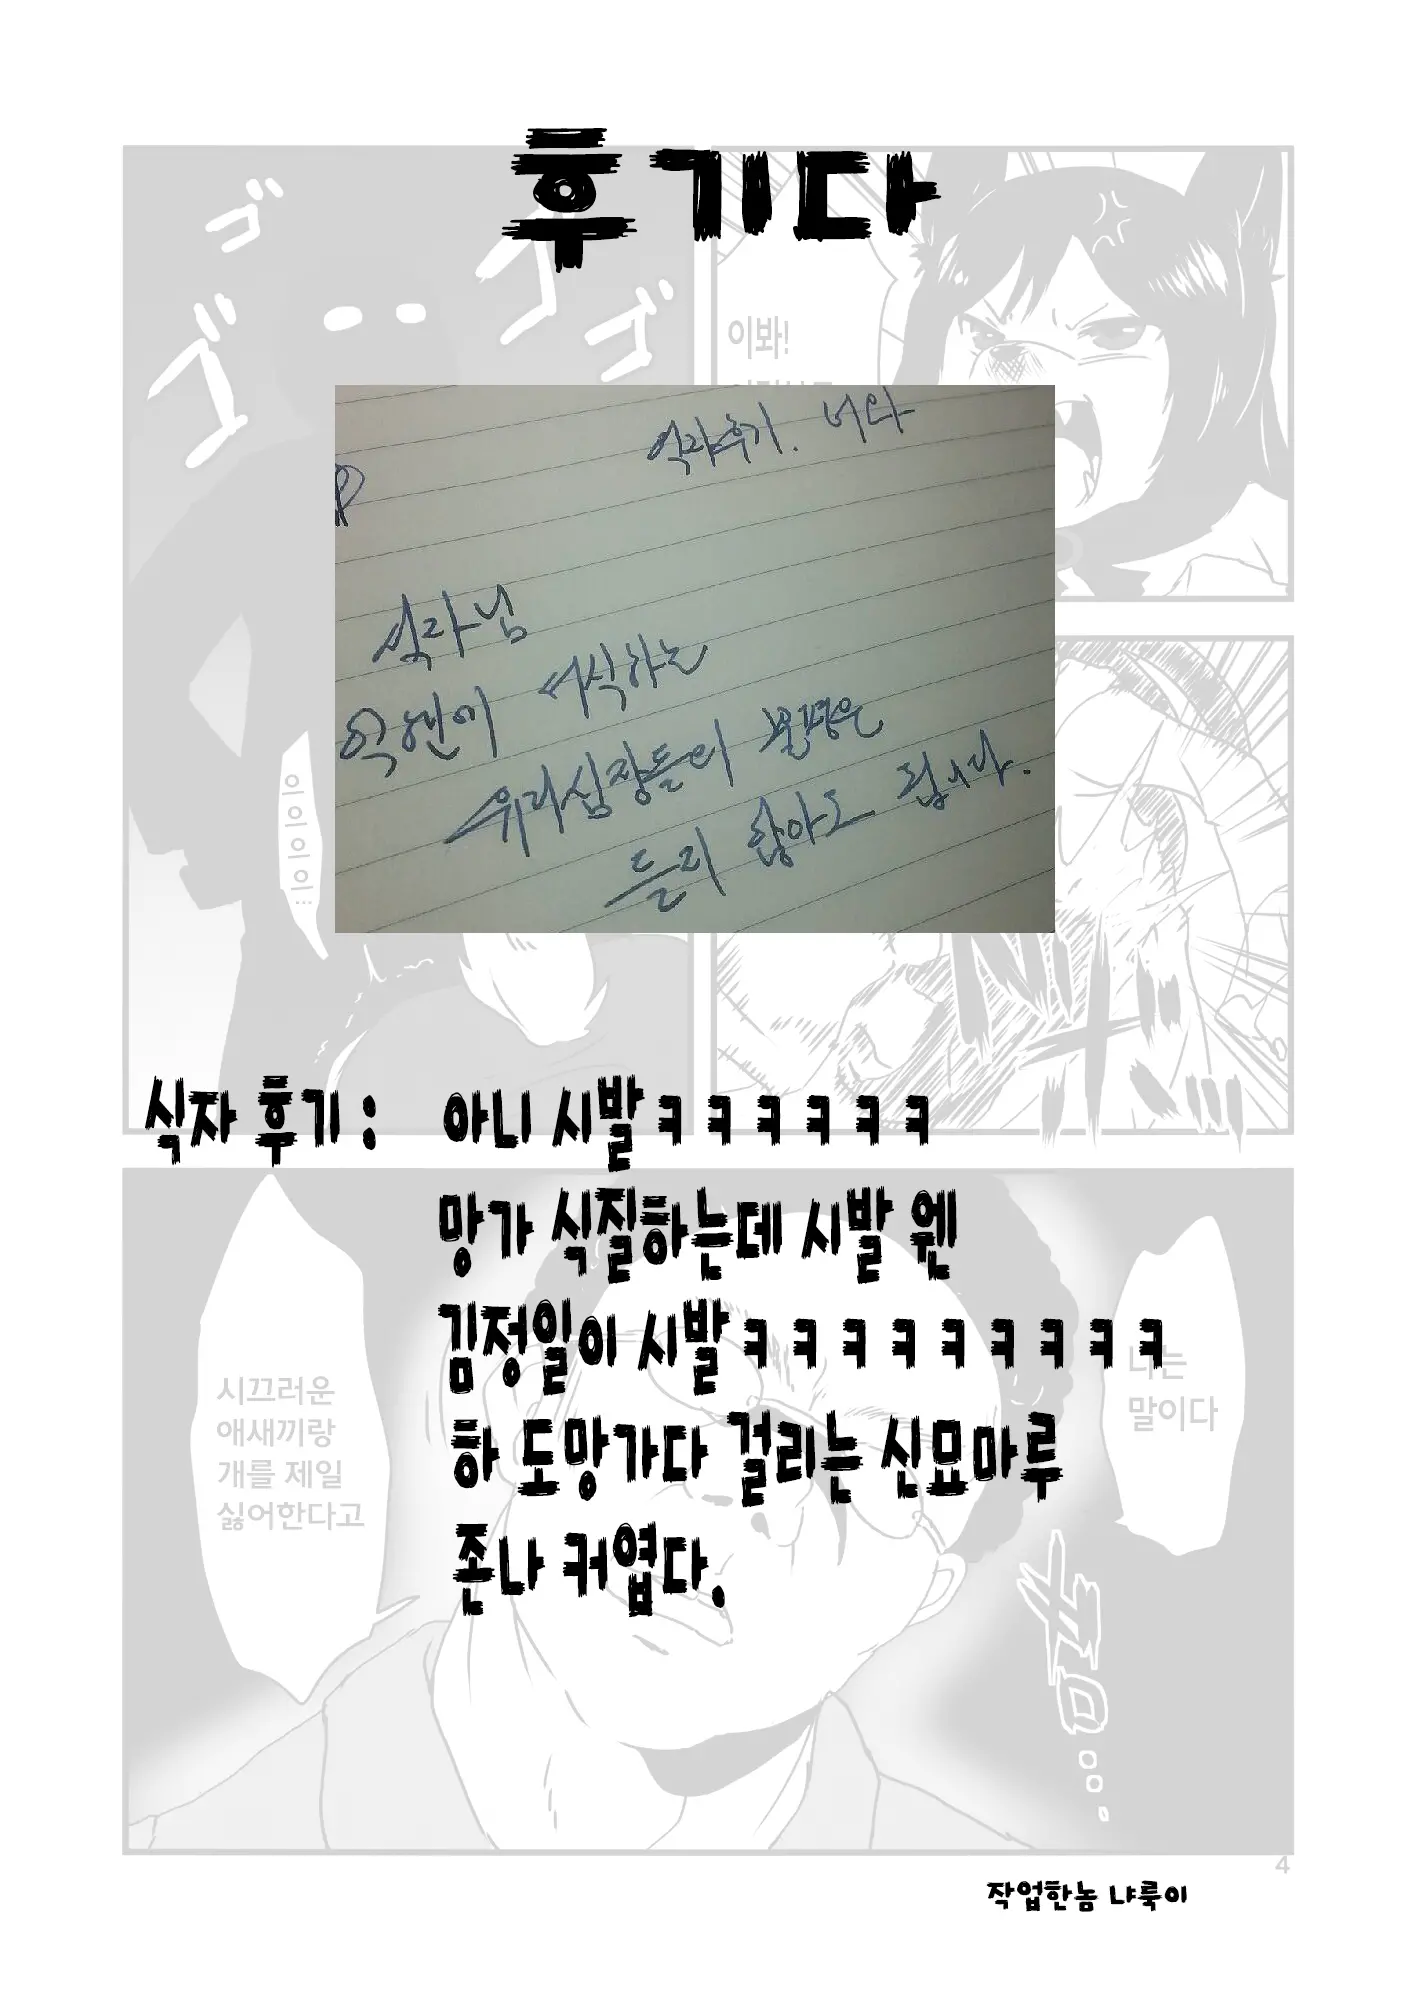 후기다
ゴ
ゴ
ゴ
ゴ
이봐!
역자후기. 너다
식자님
역변에 서식하는
위리심장들의 불평은
들리 않아도 됩니다.
이이이이…
식자 후기 : 아니 시발ㅋㅋㅋㅋㅋㅋ
망가 식질하는데 시발 웬
김정일이 시발ㅋㅋㅋㅋㅋㅋㅋㅋㅋ
하 도망가다 걸리는 신묘마루
존나 커엽다.
나는
말이다
시끄러운
애새끼랑
개를 제일
싫어한다고
4
작업한놈 냐룩이